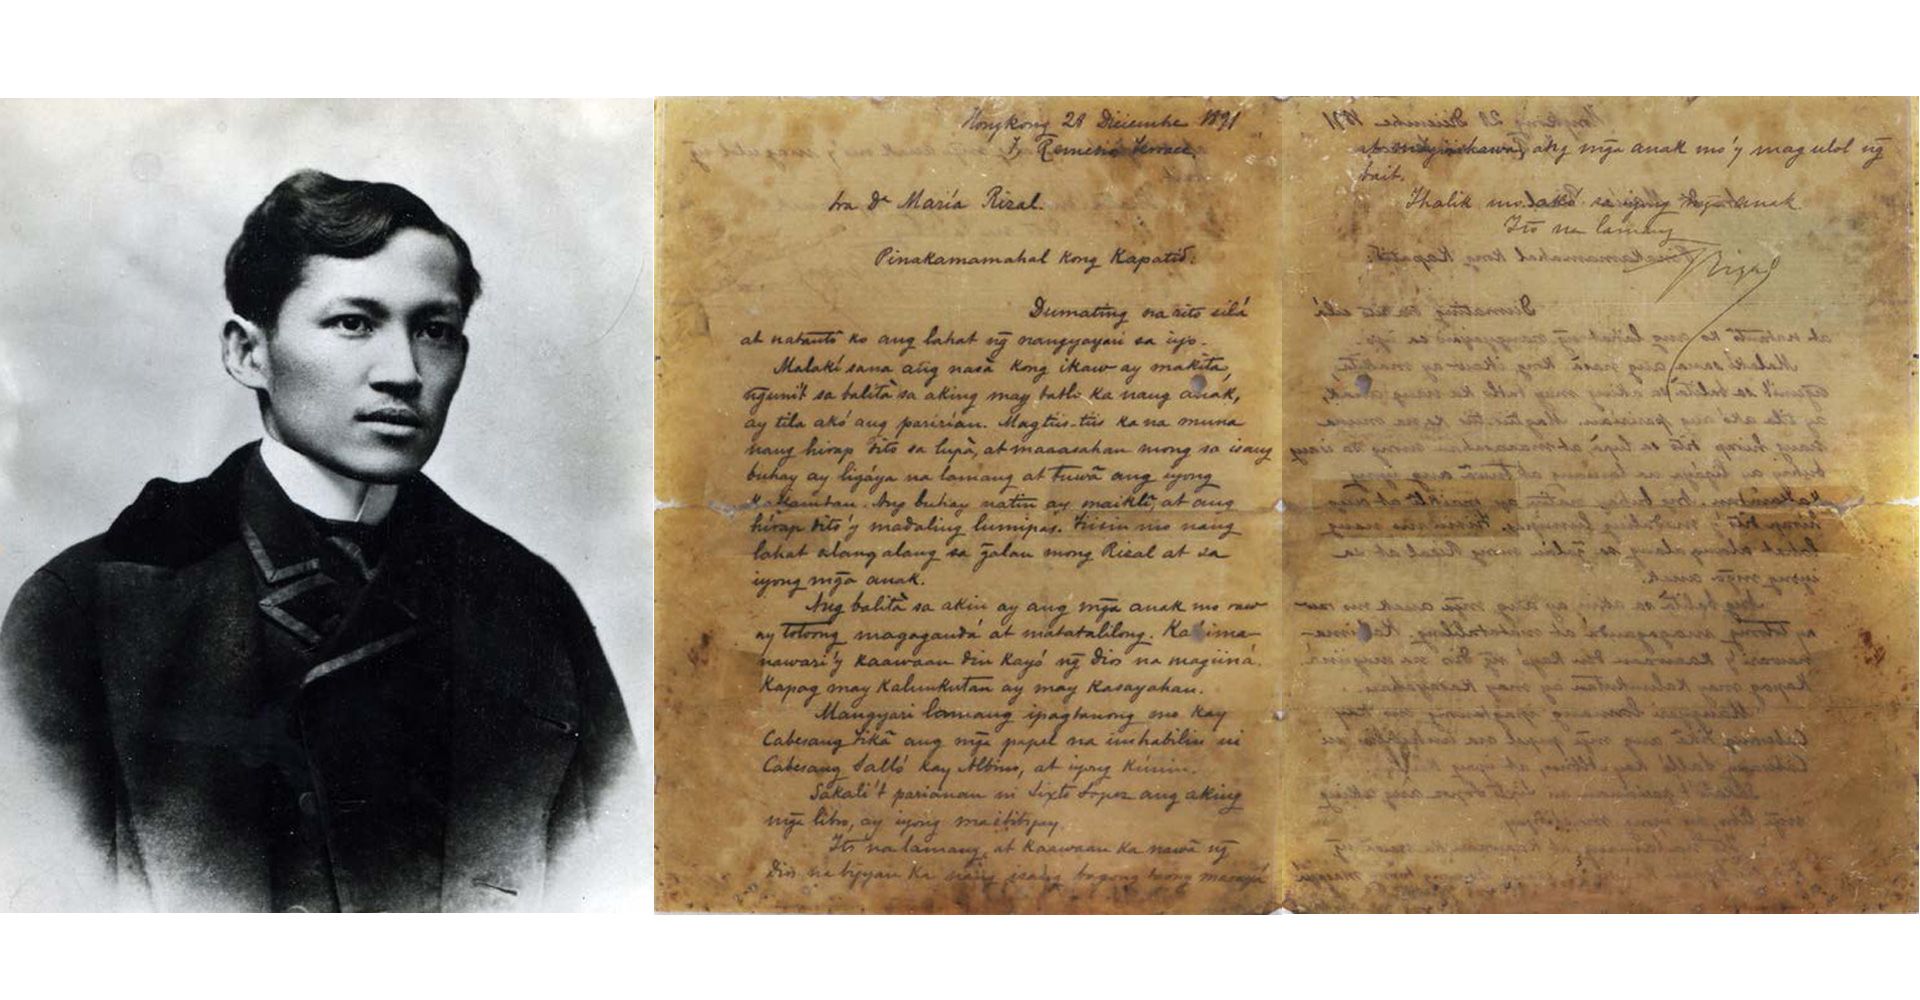 Hongkong 28 Diciembre 1891
7, Remedios Terrace.
Sra Da María Rizal.
Pinakamamahal kong Kapatid:
Dumating na rito silá
at natantô ko ang lahat ng̃ nangyayari sa iyo.
Malakí sana ang nasà kong ikaw ay makita,
ng̃uni't sa balità sa aking may tatlo ka nang anak,
ay tila akó ang paririan. Magtiis-tiis ka na muna
nang hirap dito sa lupà, at maaasahan mong sa isang
buhay ay ligáya na lamang at tuwâ ang iyong
Ang buhay natin ay maiklî, at ang
hirap dito'y madaling lumipas. Tiisin mo nang
lahat alang alang sa g̃alan mong Rizal at sa
iyong mg̃a anak.
Ang balità sa akin ay ang mg̃a anak mo raw
ay totoong magagandá at matatalilong.
nawari'y kaawaan din kayó ng̃ Dios na magiiná.
Kapag may kalunkutan ay may kasayahan.
Mangyari lamang ipagtanong mo kay
Cabesang Tikâ ang mg̃a papel na inihabilin ni
Cabesang Salló kay Albino, at iyong kúnin.
Sakali't parianan ni Sixto Lopez ang aking
mg̃a libro, ay iyong
Itó na lamang, at kaawaan ka nawâ ng̃
Dios na bigyan ka nang isang bagong taong masayá
at ang mg̃a anak mo'y mag ulol ng̃
bait.
Ihalik mo akó sa iyong mg̃a anak.
Itó na lamang
Rizal